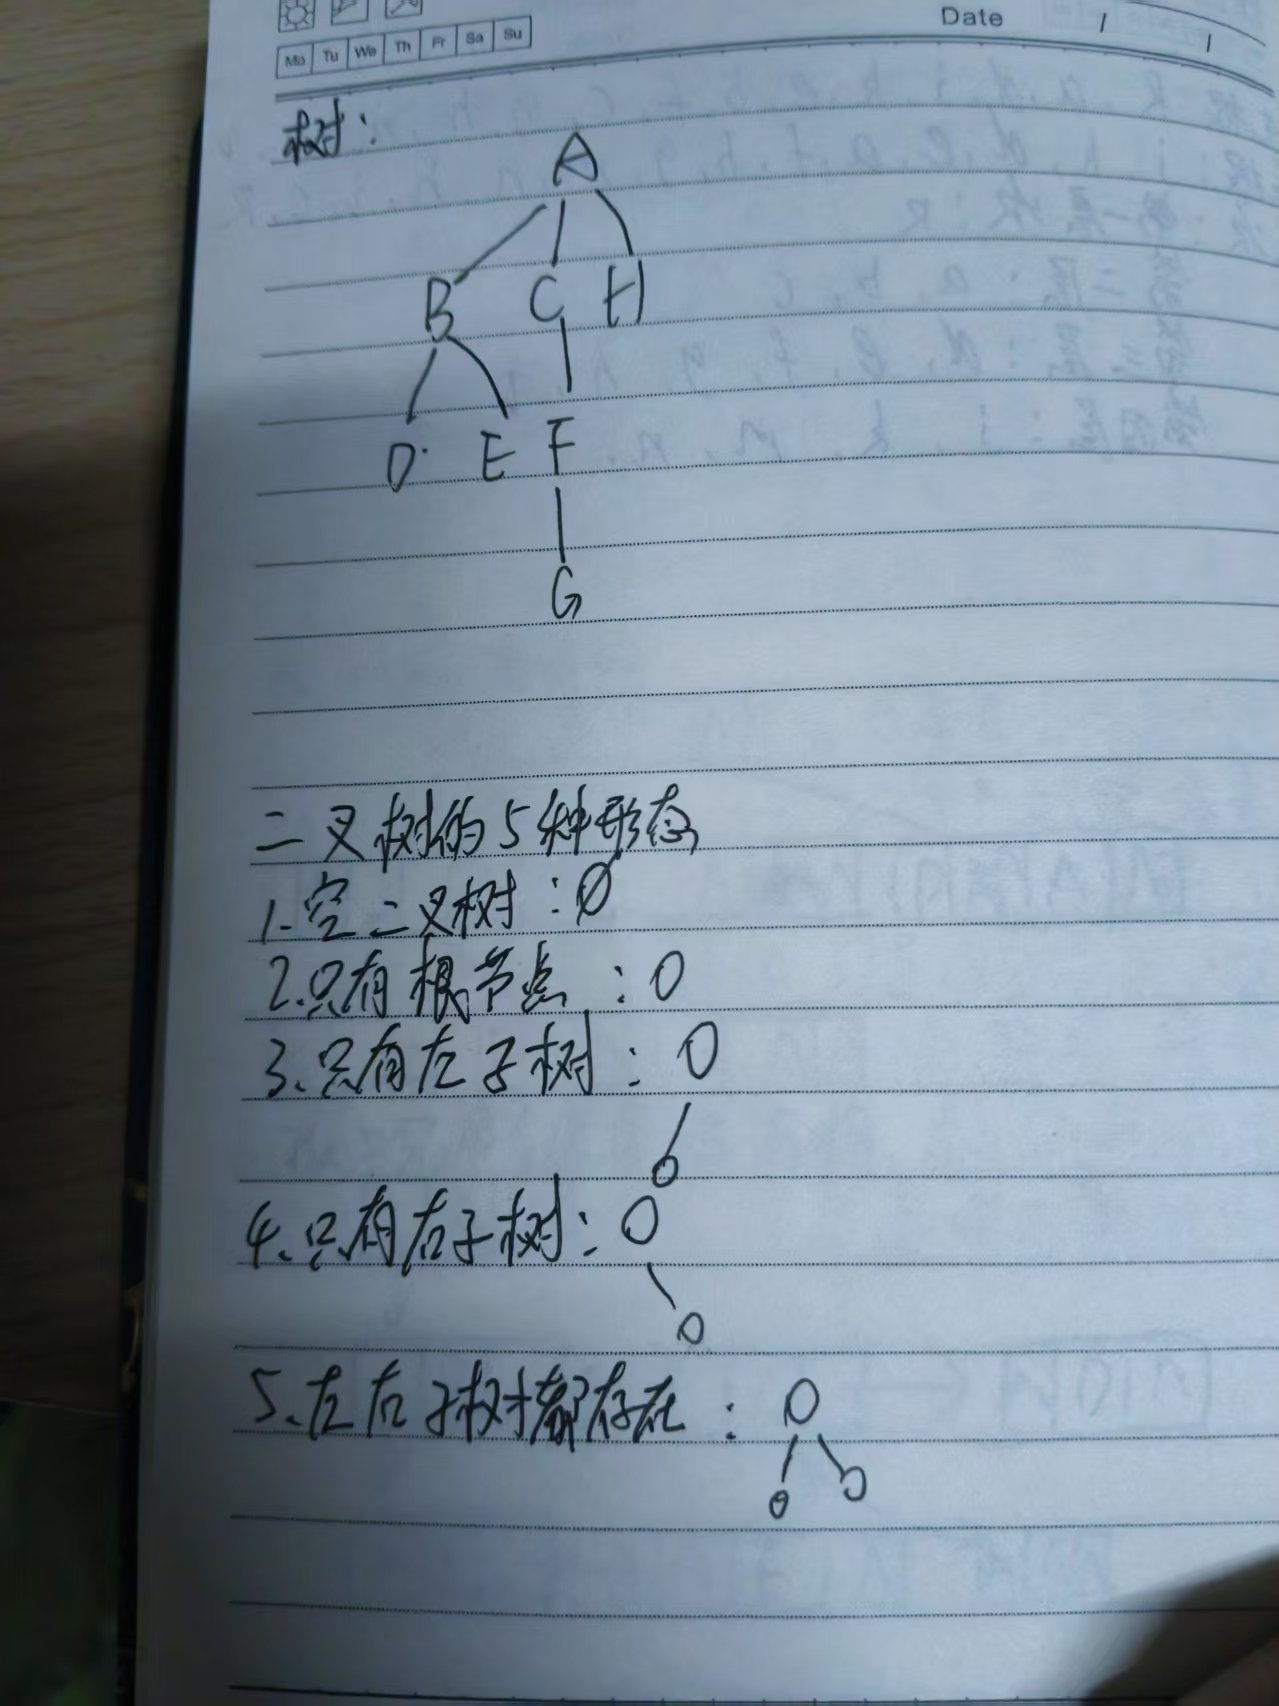 Date / /
Mo Tu We Th Fr Sa Su
树:
A
B C H
D E F
G
二叉树的5种形态
1.空二叉树:Ø
2.只有根节点:O
3.只有左子树:O
O
4.只有右子树:O
O
5.左右子树都存在:O
O O